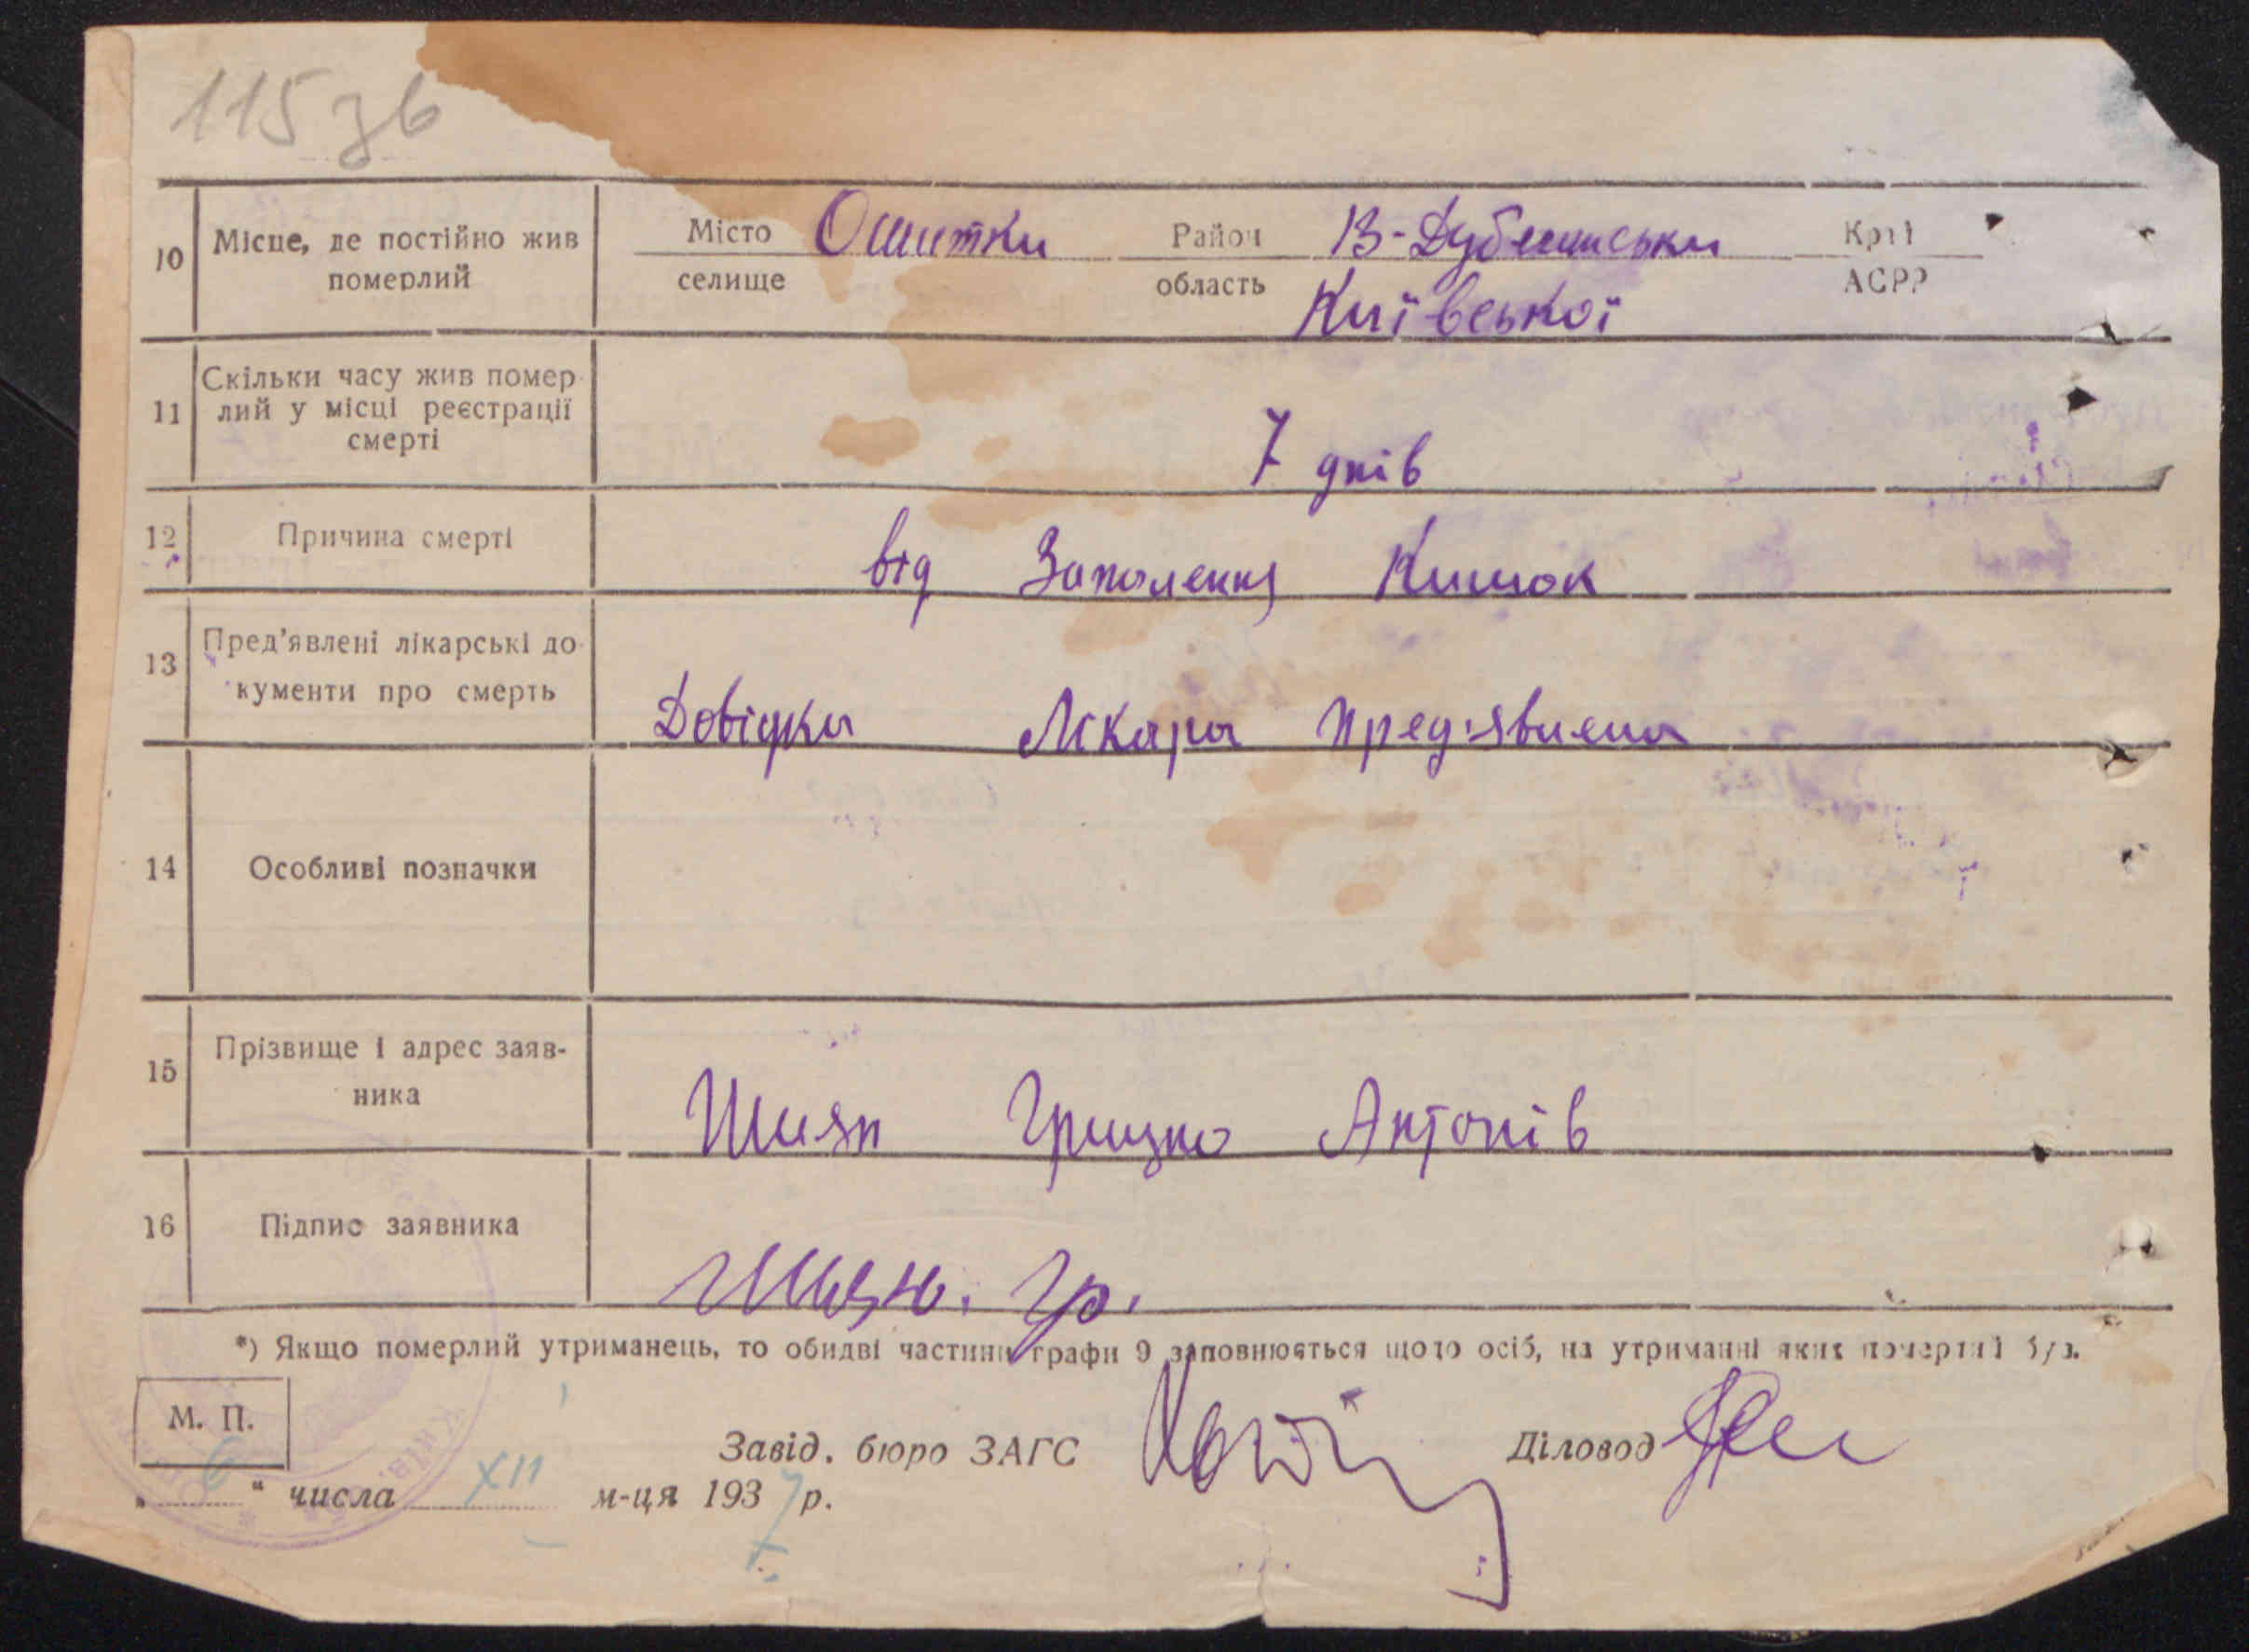 115 зв
10 Місце, де постійно жив померлий
Місто Ошитки Район В-Дубечнськи Край
селище область Київської АСРР
11 Скільки часу жив помер-
лий у місці реєстрації
смерті
7 днів
12 Причина смерті від Запалення Кишок
13 Пред’явлені лікарські до-
кументи про смерть
Довідка лікара пред'явлена
14 Особливі позначки
15 Прізвище і адрес заяв-
ника
Шиян Грицко Антонів
16 Підпис заявника
Шиян. Гр.
*) Якщо померлий утриманець, то обидві частини графи 9 заповнюється щодо осіб, на утриманні яких померлий був.
М. П.
Завід. бюро ЗАГС Діловод
„ 6 “ числа XII м-ця 1937 р.